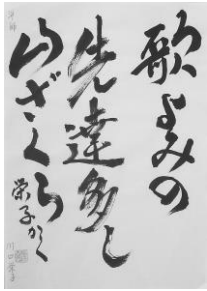 歌よみの
先達多し
山ざくら
栄子かく
川口栄子